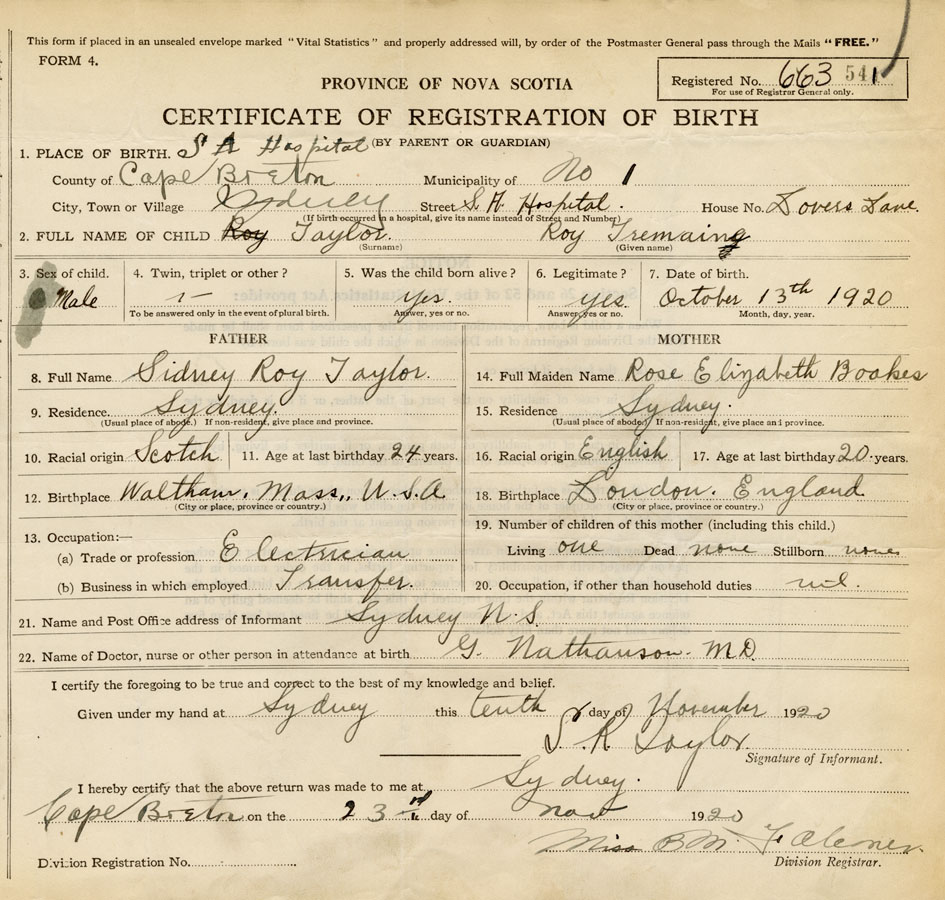 This form if placed in an unsealed envelope marked "Vital Statistics" and properly addressed will, by order of the Postmaster General pass through the Mails "FREE."
FORM 4.
Registered No. 663 541
For use of Registrar General only.
PROVINCE OF NOVA SCOTIA
CERTIFICATE OF REGISTRATION OF BIRTH
(BY PARENT OR GUARDIAN)
1. PLACE OF BIRTH. S A Hospital
County of Cape Breton Municipality of No 1
City, Town or Village Sydney Street S. A. Hospital. House No. Lovers Lane.
(If birth occurred in a hospital, give its name instead of Street and Number)
2. FULL NAME OF CHILD Roy Taylor. Roy Tremaing
(Surname) (Given name)
3. Sex of child. 4. Twin, triplet or other? 5. Was the child born alive? 6. Legitimate? 7. Date of birth.
Male 1- yes. yes. October 13th 1920
To be answered only in the event of plural birth. Answer, yes or no. Answer, yes or no. Month, day, year.
FATHER MOTHER
8. Full Name Sidney Roy Taylor. 14. Full Maiden Name Rose Elizabeth Boakes
9. Residence. Sydney. 15. Residence Sydney.
(Usual place of abode.) If non-resident, give place and province. (Usual place of abode) If non-resident, give place and province.
10. Racial origin Scotch 11. Age at last birthday 24 years. 16. Racial origin English 17. Age at last birthday 20 years.
12. Birthplace Waltham, Mass., U.S.A. 18. Birthplace London. England
(City or place, province or country.) (City or place, province or country.)
13. Occupation:— 19. Number of children of this mother (including this child.)
(a) Trade or profession Electrician Living one Dead none Stillborn none
(b) Business in which employed Transfer. 20. Occupation, if other than household duties nil.
21. Name and Post Office address of Informant Sydney N.S.
22. Name of Doctor, nurse or other person in attendance at birth G. Nathanson. M.D.
I certify the foregoing to be true and correct to the best of my knowledge and belief.
Given under my hand at Sydney this tenth day of November 1920
S. R. Taylor
Signature of Informant.
I hereby certify that the above return was made to me at Sydney.
Cape Breton on the 23rd day of Nov 1920
Miss B.M. Falconer.
Division Registration No. Division Registrar.